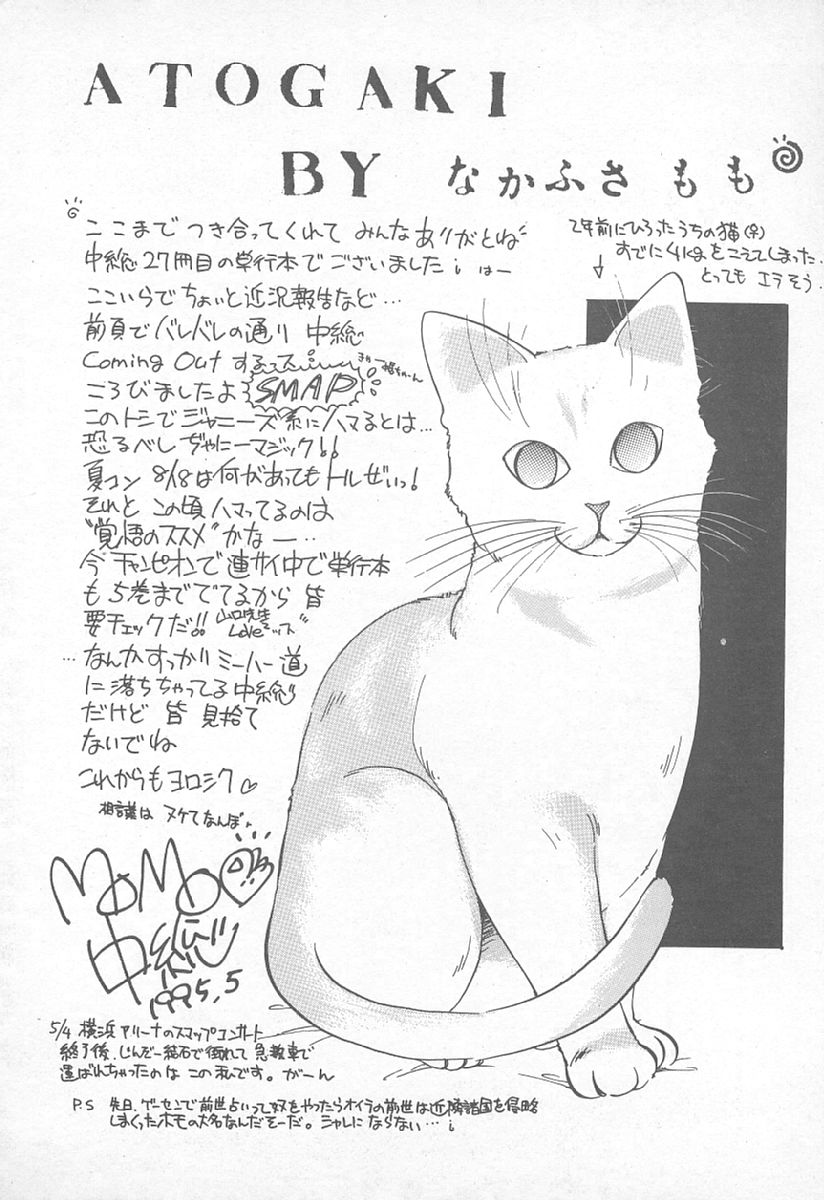 ATOGAKI
BY なかふさ もも
ここまで つき合ってくれて みんなありがとね
中総27冊目の単行本でございました はー
ここいらでちょいと近況報告など…
前頁でバレバレの通り 中総
Coming Out するっス
ころびましたよ SMAP
このトシでジャニーズ系にハマるとは…
恐るべしぢゃにーマジック!!
夏コン 8/18は何があってもトルぜいっ!
それと この頃ハマってるのは
"覚悟のススメ"かなー…
今チャンピオンで連サイ中で単行本
も5巻まででてるから 皆
要チェックだ!! 山口先生Loveッス
…なんかすっかりミーハー道
に落ちちゃってる中総
だけど 皆 見捨て
ないでね
これからもヨロシク♡
相言葉は ヌケてなんぼ
MOMO
中総
1995.5
2年前にひろったうちの猫(♀)
すでに4kgをこえてしまった…
とっても エラそう
5/4 横浜アリーナのスマップコンサート
終了後、じんぞー結石で倒れて 急救車で
運ばれちゃったのは この私です。がーん
P.S 先日、ゲーセンで前世占いって奴をやったらオイラの前世は近隣諸国を侵略
しまくったホモの大名なんだそーだ。シャレにならない…